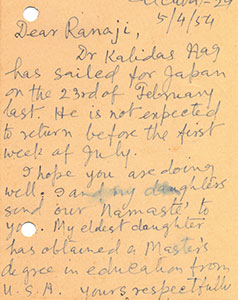 -29
5/4/54
Dear Ranaji,
Dr Kalidas Nag
has sailed for Japan
on the 23rd of February
last. He is not expected
to return before the first
week of July.
I hope you are doing
well. I and my daughters
send our 'Namaste' to
you. My eldest daughter
has obtained a Master's
degree in education from
U.S.A. yours respectfully